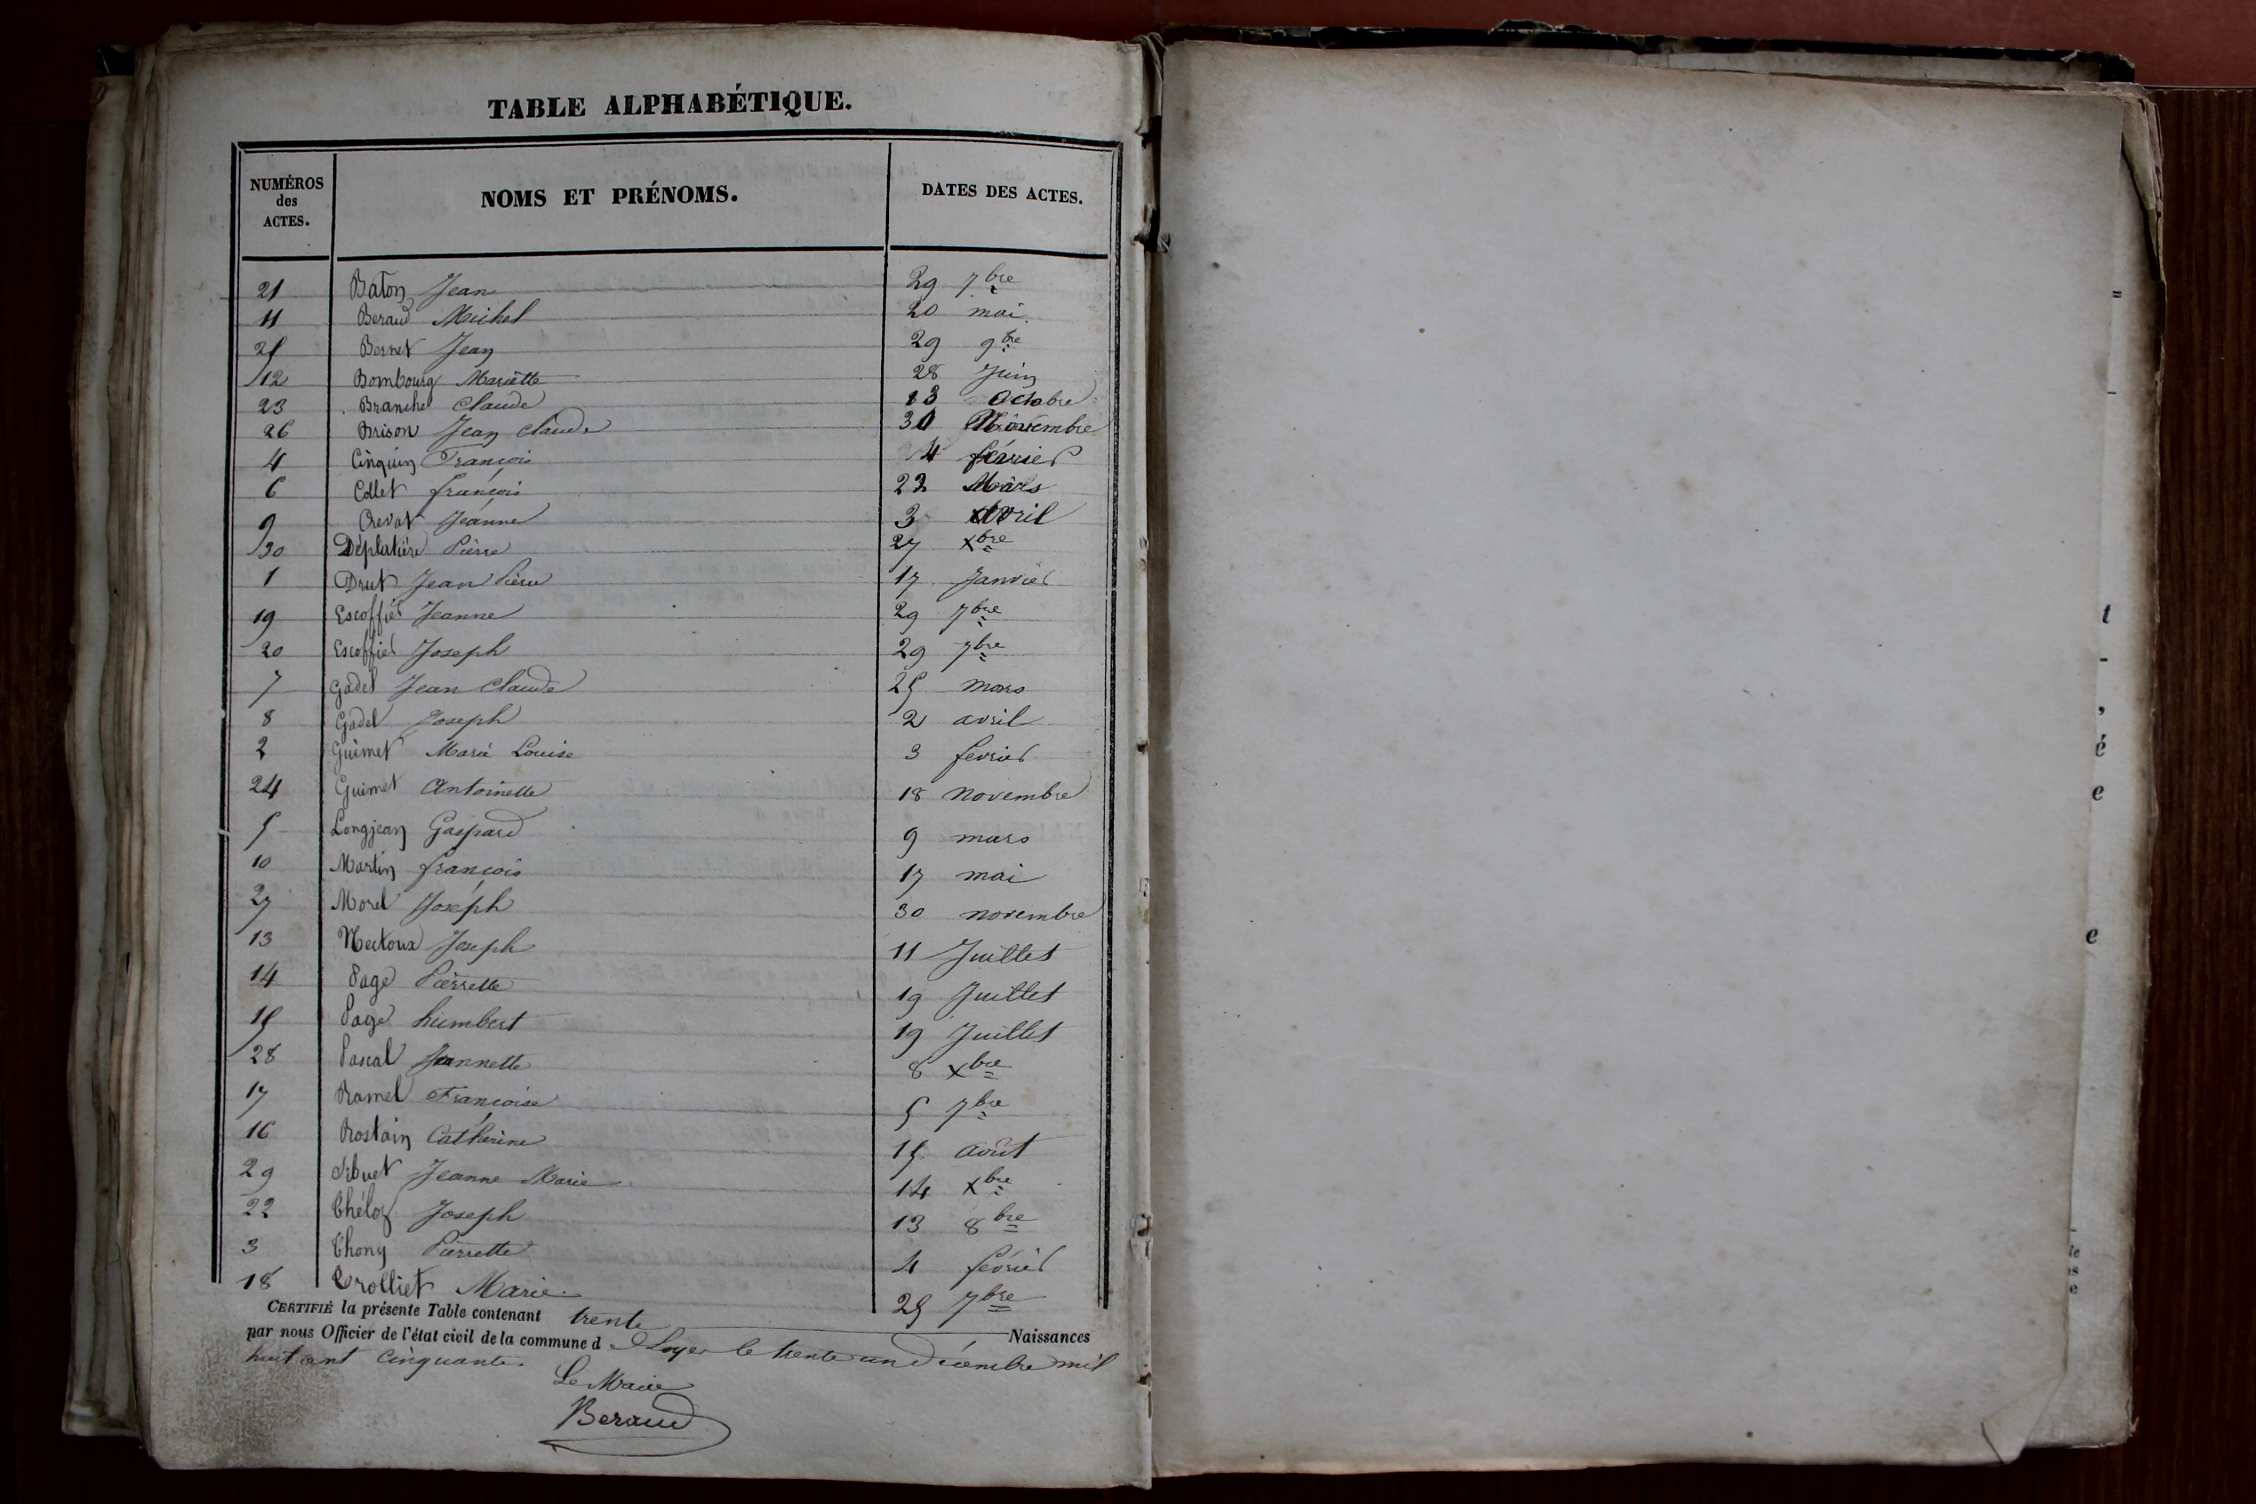 TABLE ALPHABÉTIQUE.
NUMÉROS des ACTES. NOMS ET PRÉNOMS. DATES DES ACTES.
21 Baton Jean 29 7bre
11 Beraud Michel 20 mai
25 Bernet Jean 29 9bre
12 Bombourg Mariette 28 Juin
23 Branche Claude 13 Octobre
26 Brison Jean Claude 30 Novembre
4 Cinquin François 4 février
6 Collet françois 22 Mars
9 Crevat Jeanne 3 avril
30 Déplatière Pierre 27 Xbre
1 Drut Jean Pierre 17 Janvier
19 Escoffier Jeanne 29 7bre
20 Escoffier Joseph 29 7bre
7 Gadel Jean Claude 25 mars
8 Gadel Joseph 2 avril
2 Guimet Marie Louise 3 fevrier
24 Guimet Antoinette 18 novembre
5 Longjean Gaspard 9 mars
10 Martin françois 17 mai
27 Morel Joseph 30 novembre
13 Nectoux Joseph 11 Juillet
14 Page Pierrette 19 Juillet
15 Page humbert 19 Juillet
28 Pascal Jeannette 8 Xbre
17 Ramel Françoise 5 7bre
16 Rostain Catherine 15 août
29 Jeanne Marie 14 Xbre
22 Joseph 13 8bre
3 Thony Pierrette 4 février
18 Trolliet Marie 25 7bre
CERTIFIÉ la présente Table contenant trente Naissances
par nous Officier de l'état civil de la commune d e Loyes le trente un décembre mil
huit cent cinquante.
Le Maire
Beraud